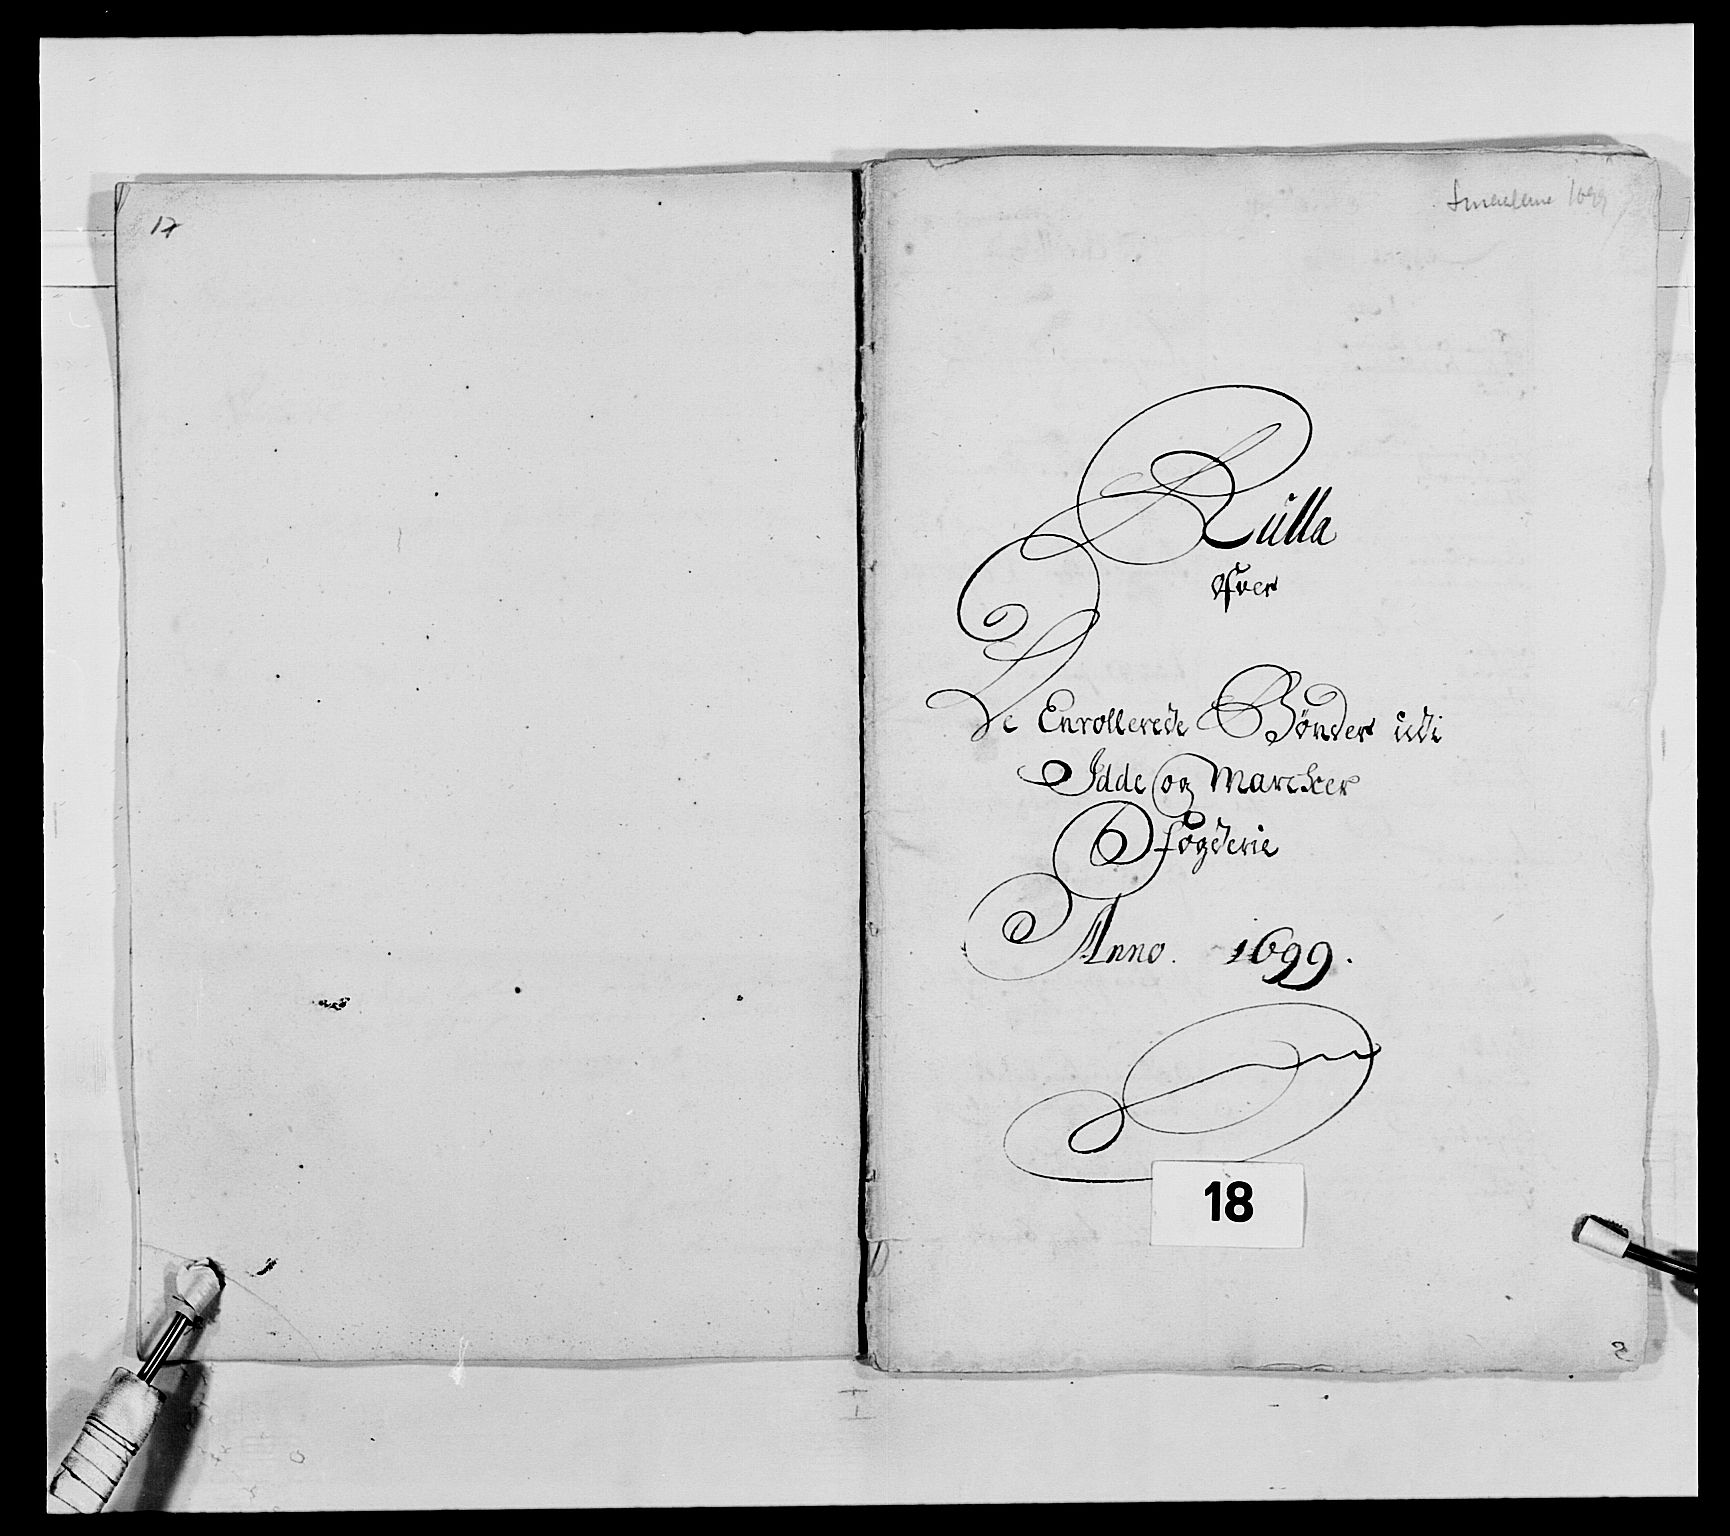 17
Smaalene 1699
Rulla
Ofver
De Enrollerede Bønder udi
Idde og Marcker
fogderie
Anno. 1699.
18